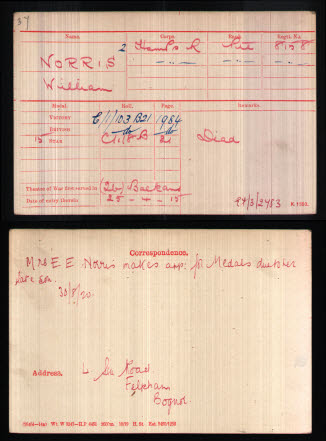 37
Name. Corps. Rank. Regtl. No.
NORRIS 2 Hamps R Pte 8158
William
Medal. Roll. Page. Remarks.
VICTORY C/1/103 B21 1984
BRITISH do do
15 STAR C/1/8B 21 Died
Theatre of War first served in (2b) Balkans
Date of entry therein 25-4-15
K 1380.
Correspondence.
Mrs E. E. Norris makes app: for Medals due to her
late son.
30/8/20.
Address. Sea Road
Felpham
Bognor